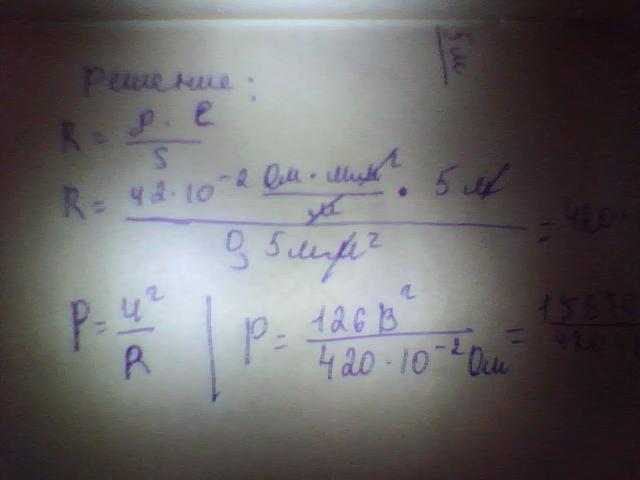 5м
Решение:
R = ρ · l / S
R = 42·10⁻² Ом·мм²/м · 5 м / 0,5 мм² = 420
P = U²/R | P = 126 В² / 420·10⁻² Ом = 15876 / 420